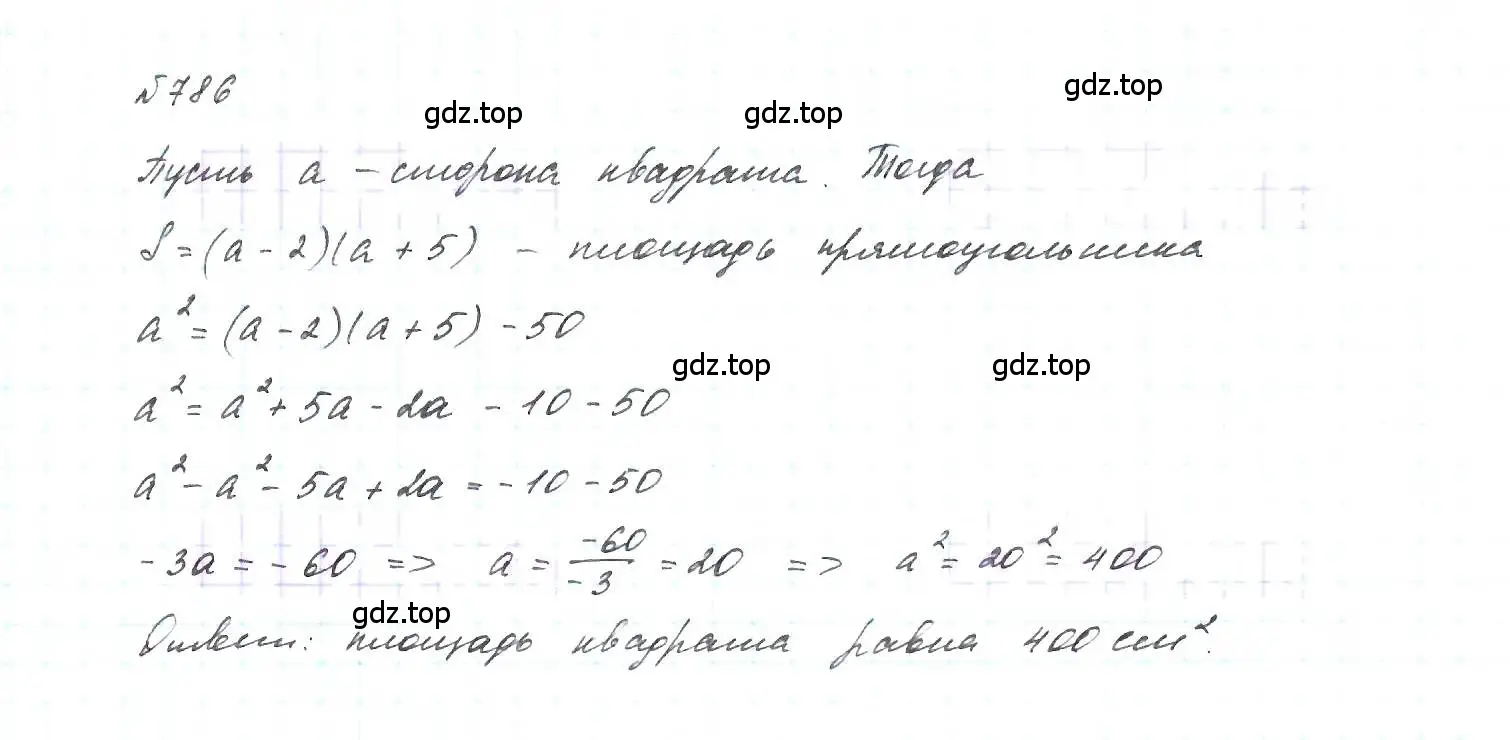 №786
gdz.top gdz.top gdz.top
Пусть a – сторона квадрата. Тогда
S = (a - 2)(a + 5) – площадь прямоугольника
a² = (a - 2)(a + 5) - 50
gdz.top gdz.top
a² = a² + 5a - 2a - 10 - 50
a² - a² - 5a + 2a = -10 - 50
-3a = -60 => a = -60/-3 = 20 => a² = 20² = 400
gdz.top
Ответ: площадь квадрата равна 400 см².